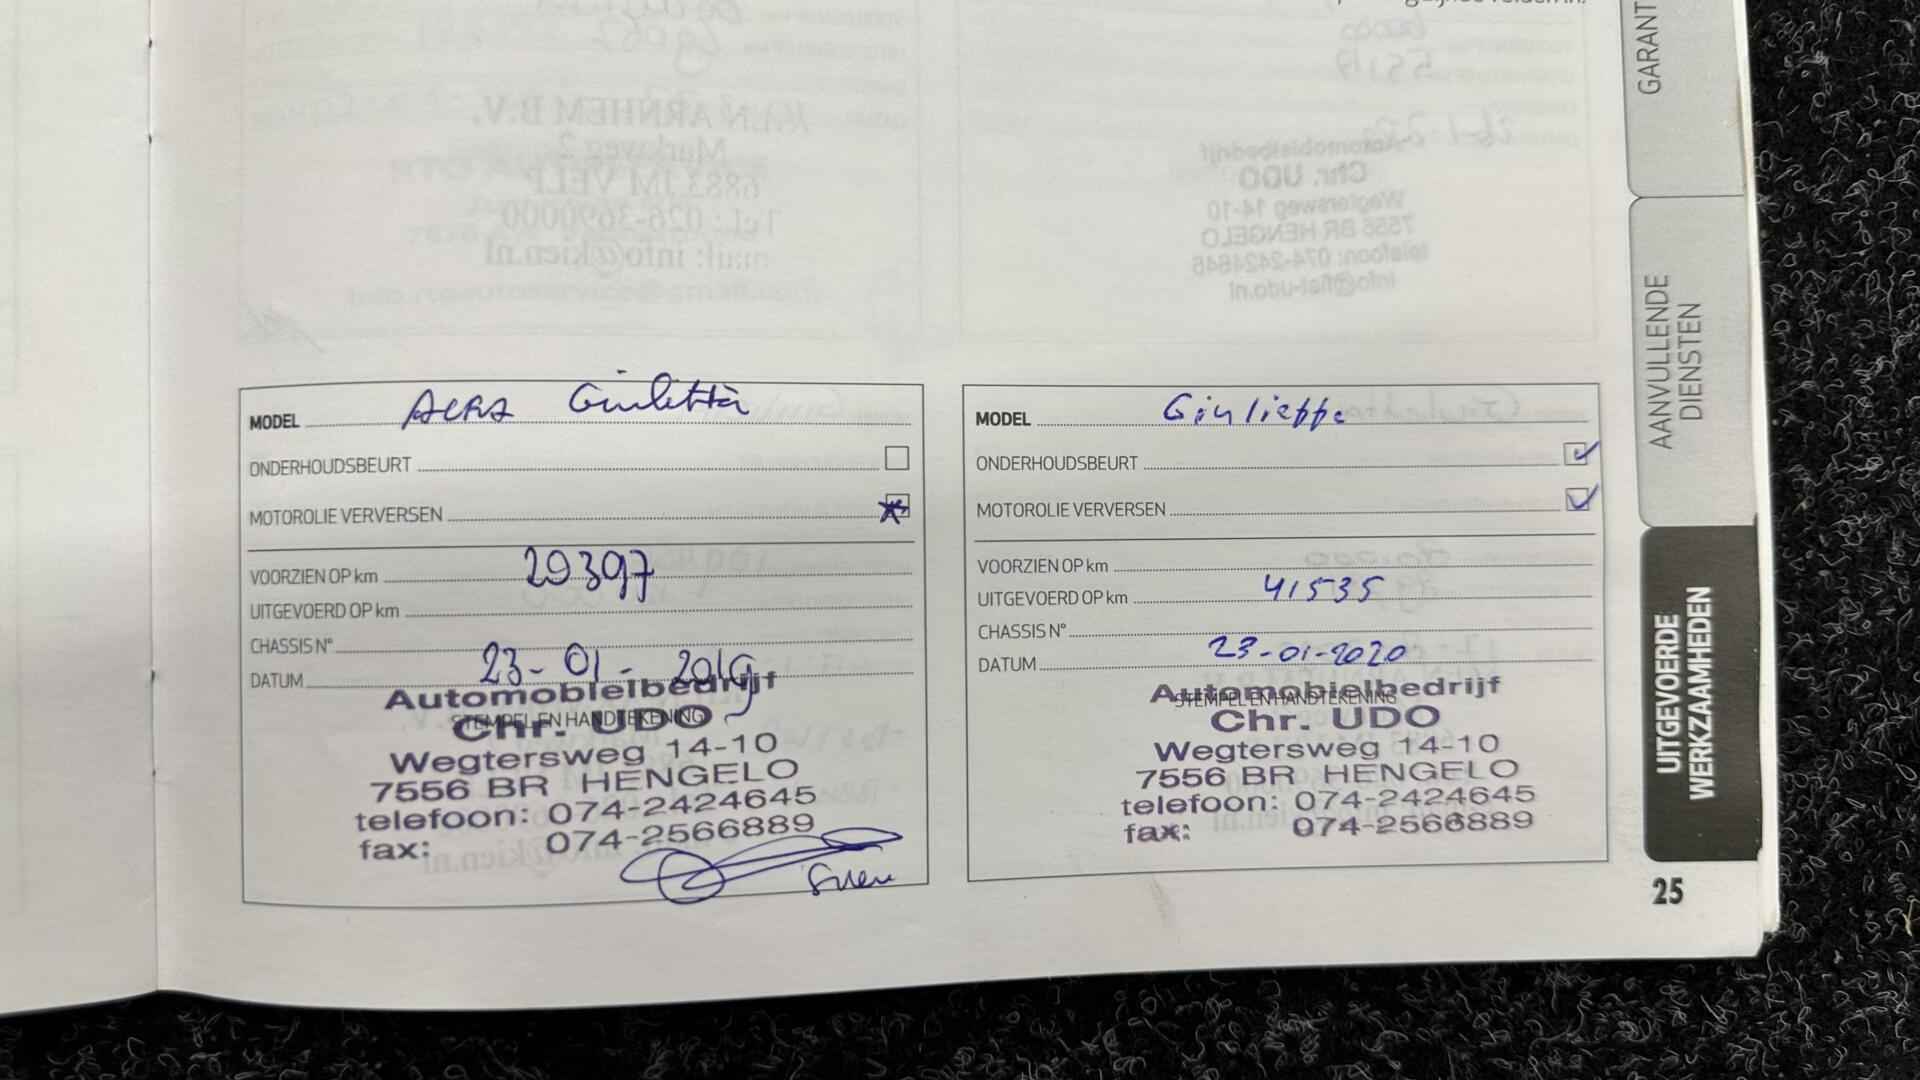 MODEL Alfa Giulietta
ONDERHOUDSBEURT
MOTOROLIE VERVERSEN
VOORZIEN OP km 29397
UITGEVOERD OP km
CHASSIS N°
DATUM 23-01-2019
STEMPEL EN HANDTEKENING
Automobielbedrijf
Chr. UDO
Wegtersweg 14-10
7556 BR HENGELO
telefoon: 074-2424645
fax: 074-2566889
MODEL Giulieppe
ONDERHOUDSBEURT
MOTOROLIE VERVERSEN
VOORZIEN OP km
UITGEVOERD OP km 41535
CHASSIS N°
DATUM 23-01-2020
STEMPEL EN HANDTEKENING
Automobielbedrijf
Chr. UDO
Wegtersweg 14-10
7556 BR HENGELO
telefoon: 074-2424645
fax: 074-2566889
GARANT
AANVULLENDE
DIENSTEN
UITGEVOERDE
WERKZAAMHEDEN
25